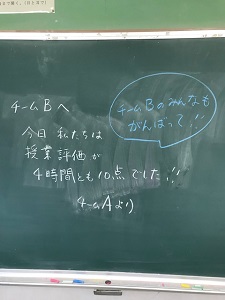 チームBへ
今日 私たちは
授業評価が
4時間とも10点でした!!
チームAより
チームBのみんなも
がんばって!!